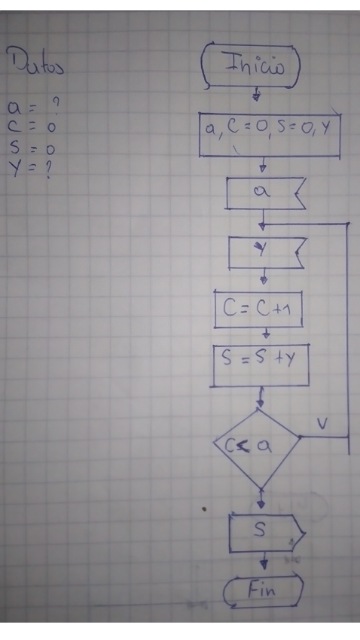 Datos
a = ?
C = 0
S = 0
Y = ?
Inicio
a, C = 0, S = 0, Y
a
Y
C = C + 1
S = S + Y
C < a
V
S
Fin